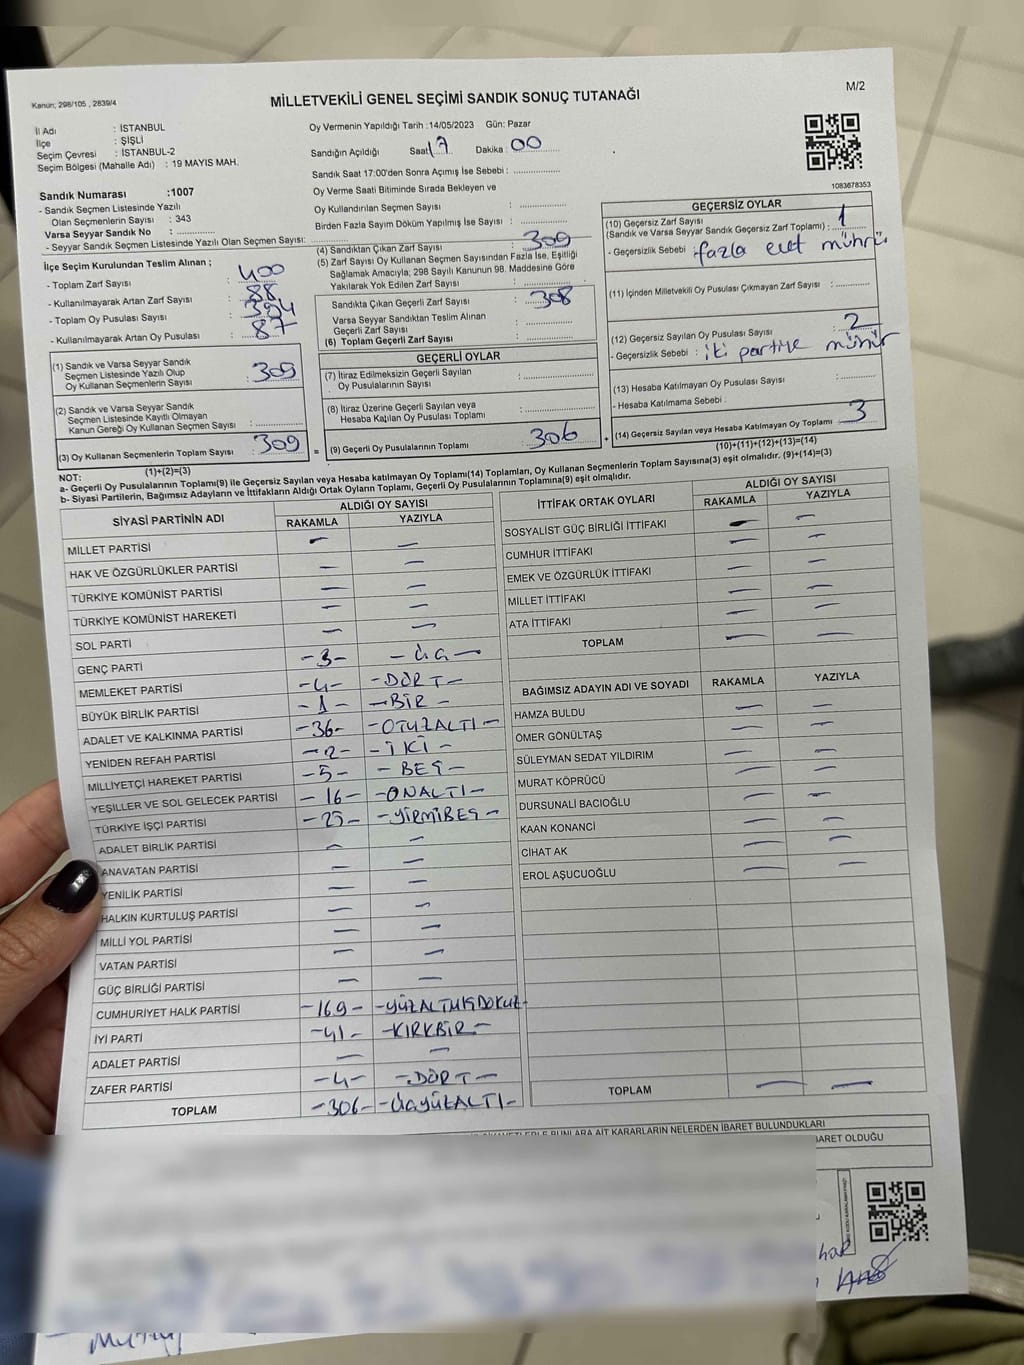 Kanun; 298/105 , 2839/4
MİLLETVEKİLİ GENEL SEÇİMİ SANDIK SONUÇ TUTANAĞI
M/2
İl Adı : İSTANBUL
İlçe : ŞİŞLİ
Seçim Çevresi : İSTANBUL-2
Seçim Bölgesi (Mahalle Adı) : 19 MAYIS MAH.
Sandık Numarası :1007
- Sandık Seçmen Listesinde Yazılı
Olan Seçmenlerin Sayısı : 343
Varsa Seyyar Sandık No :
- Seyyar Sandık Seçmen Listesinde Yazılı Olan Seçmen Sayısı:
Oy Vermenin Yapıldığı Tarih :14/05/2023 Gün: Pazar
Sandığın Açıldığı Saat 17 Dakika : 00
Sandık Saat 17:00'den Sonra Açımış İse Sebebi :
Oy Verme Saati Bitiminde Sırada Bekleyen ve
Oy Kullandırılan Seçmen Sayısı :
Birden Fazla Sayım Döküm Yapılmış İse Sayısı :
1083678353
İlçe Seçim Kurulundan Teslim Alınan ;
- Toplam Zarf Sayısı : 400
- Kullanılmayarak Artan Zarf Sayısı : 88
- Toplam Oy Pusulası Sayısı : 394
- Kullanılmayarak Artan Oy Pusulası : 87
(1) Sandık ve Varsa Seyyar Sandık
Seçmen Listesinde Yazılı Olup
Oy Kullanan Seçmenlerin Sayısı : 309
(2) Sandık ve Varsa Seyyar Sandık
Seçmen Listesinde Kayıtlı Olmayan
Kanun Gereği Oy Kullanan Seçmen Sayısı :
(3) Oy Kullanan Seçmenlerin Toplam Sayısı : 309
(1)+(2)=(3)
(4) Sandıktan Çıkan Zarf Sayısı : 309
(5) Zarf Sayısı Oy Kullanan Seçmen Sayısından Fazla İse, Eşitliği
Sağlamak Amacıyla; 298 Sayılı Kanunun 98. Maddesine Göre
Yakılarak Yok Edilen Zarf Sayısı :
Sandıkta Çıkan Geçerli Zarf Sayısı : 308
Varsa Seyyar Sandıktan Teslim Alınan
Geçerli Zarf Sayısı :
(6) Toplam Geçerli Zarf Sayısı :
GEÇERLİ OYLAR
(7) İtiraz Edilmeksizin Geçerli Sayılan
Oy Pusulalarının Sayısı :
(8) İtiraz Üzerine Geçerli Sayılan veya
Hesaba Katılan Oy Pusulası Toplamı :
= (9) Geçerli Oy Pusulalarının Toplamı : 306 +
GEÇERSİZ OYLAR
(10) Geçersiz Zarf Sayısı
(Sandık ve Varsa Seyyar Sandık Geçersiz Zarf Toplamı) : 1
- Geçersizlik Sebebi : fazla evet mührü
(11) İçinden Milletvekili Oy Pusulası Çıkmayan Zarf Sayısı :
(12) Geçersiz Sayılan Oy Pusulası Sayısı : 2
- Geçersizlik Sebebi : iki partiye mühür
(13) Hesaba Katılmayan Oy Pusulası Sayısı :
- Hesaba Katılmama Sebebi :
(14) Geçersiz Sayılan veya Hesaba Katılmayan Oy Toplamı : 3
(10)+(11)+(12)+(13)=(14)
NOT:
a- Geçerli Oy Pusulalarının Toplamı(9) ile Geçersiz Sayılan veya Hesaba katılmayan Oy Toplamı(14) Toplamları, Oy Kullanan Seçmenlerin Toplam Sayısına(3) eşit olmalıdır. (9)+(14)=(3)
b- Siyasi Partilerin, Bağımsız Adayların ve İttifakların Aldığı Ortak Oyların Toplamı, Geçerli Oy Pusulalarının Toplamına(9) eşit olmalıdır.
SİYASİ PARTİNİN ADI ALDIĞI OY SAYISI
RAKAMLA YAZIYLA
MİLLET PARTİSİ — —
HAK VE ÖZGÜRLÜKLER PARTİSİ — —
TÜRKİYE KOMÜNİST PARTİSİ — —
TÜRKİYE KOMÜNİST HAREKETİ — —
SOL PARTİ — —
GENÇ PARTİ -3- -ÜÇ-
MEMLEKET PARTİSİ -4- -DÖRT-
BÜYÜK BİRLİK PARTİSİ -1- -BİR-
ADALET VE KALKINMA PARTİSİ -36- -OTUZALTI-
YENİDEN REFAH PARTİSİ -2- -İKİ-
MİLLİYETÇİ HAREKET PARTİSİ -5- -BEŞ-
YEŞİLLER VE SOL GELECEK PARTİSİ -16- -ONALTI-
TÜRKİYE İŞÇİ PARTİSİ -25- -YİRMİBEŞ-
ADALET BİRLİK PARTİSİ — —
ANAVATAN PARTİSİ — —
YENİLİK PARTİSİ — —
HALKIN KURTULUŞ PARTİSİ — —
MİLLİ YOL PARTİSİ — —
VATAN PARTİSİ — —
GÜÇ BİRLİĞİ PARTİSİ — —
CUMHURİYET HALK PARTİSİ -169- -YÜZALTMIŞDOKUZ-
İYİ PARTİ -41- -KIRKBİR-
ADALET PARTİSİ — —
ZAFER PARTİSİ -4- -DÖRT-
TOPLAM -306- -ÜÇYÜZALTI-
İTTİFAK ORTAK OYLARI ALDIĞI OY SAYISI
RAKAMLA YAZIYLA
SOSYALİST GÜÇ BİRLİĞİ İTTİFAKI — —
CUMHUR İTTİFAKI — —
EMEK VE ÖZGÜRLÜK İTTİFAKI — —
MİLLET İTTİFAKI — —
ATA İTTİFAKI — —
TOPLAM — —
BAĞIMSIZ ADAYIN ADI VE SOYADI RAKAMLA YAZIYLA
HAMZA BULDU — —
ÖMER GÖNÜLTAŞ — —
SÜLEYMAN SEDAT YILDIRIM — —
MURAT KÖPRÜCÜ — —
DURSUNALİ BACIOĞLU — —
KAAN KONANCİ — —
CİHAT AK — —
EROL AŞUCUOĞLU — —
TOPLAM — —
BUNLARA AİT KARARLARIN NELERDEN İBARET BULUNDUKLARI
BARET OLDUĞU